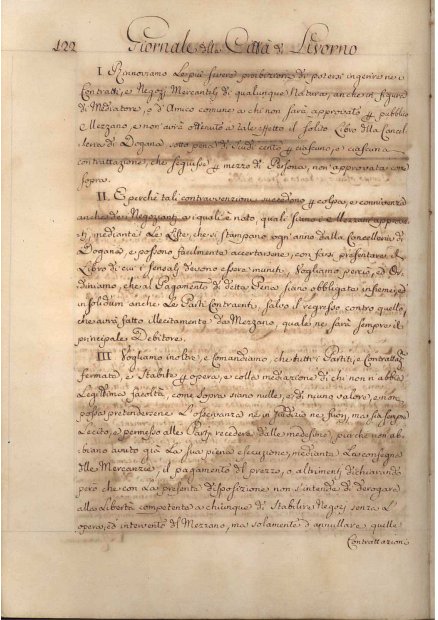 122 Giornale della Città di Livorno
I. Rinnoviamo le più severe proibizioni di potersi ingerire ne i
Contratti, e Negozj Mercantili di qualunque Natura, anche in figura
di Mediatore, o d'Amico comune a chi non sarà approvato p pubblico
Mezzano, e non avrà ottenuto a tale effetto il solito Libro dlla Cancel-
leria di Dogana, sotto pena di Scudi cento p ciascuno, e ciascuna
contrattazione, che seguisse p mezzo di Persona, non approvata come
sopra.
II. E perchè tali contravvenzioni succedono p colpa, e connivenza
anche dei Negozianti a i quali è noto, quali siano i Mezzani approva-
ti, mediante le Liste, che si stampano ogn'anno dalla Cancelleria di
Dogana, e possono facilmente accertarsene, con farsi presentare il
Libro di cui i sensali devono esser muniti, Vogliamo perciò, ed Or-
diniamo, che al Pagamento di detta Pena siano obbligate insieme, ed
in solidum anche le Parti Contraenti, salvo il regresso contro quello,
che avrà fatto illecitamente da Mezzano, quale ne sarà sempre il
principale Debitore.
III Vogliamo inoltre, e Comandiamo, che tutti i Partiti, e Contrattaz.
fermate, e stabilite p opera, e colla mediazione di chi non ne abbia
Legittima facoltà, come sopra siano nulle, e di niuno valore, e non
possa pretendersene l'osservanza nè in Giudizio nè fuori, ma sia sempre
Lecito, e permesso alle Parti recedere dalle medesime, purchè non ab-
biano avuto già la sua piena esecuzione, mediante la consegna
dlle Mercanzie, il pagamento dl prezzo, o altrimenti dichiarando
però che con la presente disposizione non s'intende di derogare
alla Libertà competente a chiunque di stabilire Negozj senza l'
opera, ed intervento dl Mezzano, ma solamente d'annullare quelle
Contrattazioni